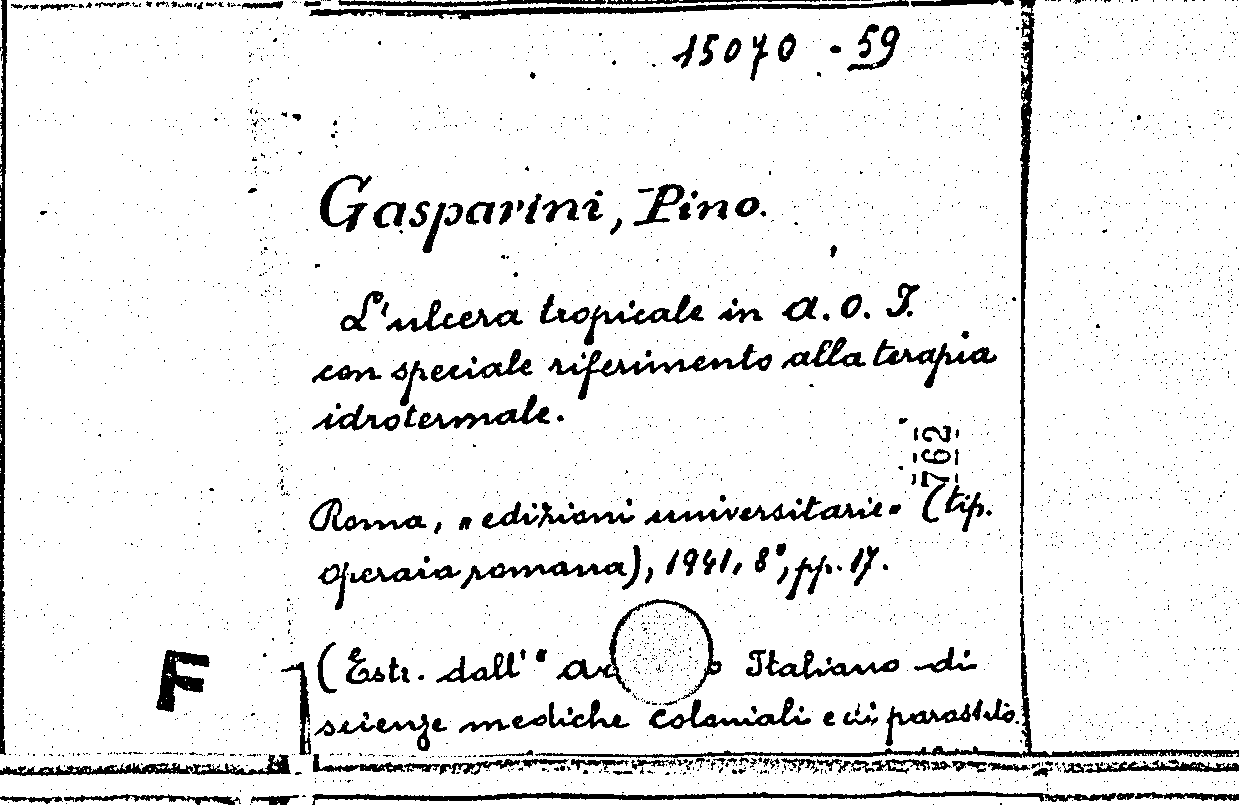 15070 - 59
Gasparini, Pino.
L'ulcera tropicale in A. O. I.
con speciale riferimento alla terapia
idrotermale.
762
Roma, "edizioni universitarie" (tip.
operaia romana), 1941, 8°, pp. 17.
F
(Estr. dall' " Italiano di
scienze mediche coloniali e di parassito